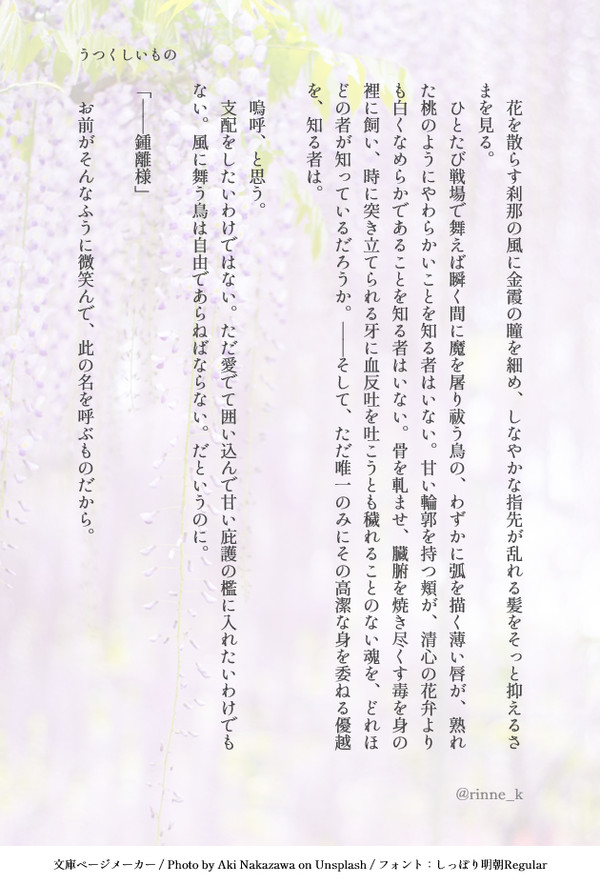 うつくしいもの
　花を散らす刹那の風に金霞の瞳を細め、しなやかな指先が乱れる髪をそっと抑えるさ
まを見る。
　ひとたび戦場で舞えば瞬く間に魔を屠り祓う鳥の、わずかに弧を描く薄い唇が、熟れ
た桃のようにやわらかいことを知る者はいない。甘い輪郭を持つ頬が、清心の花弁より
も白くなめらかであることを知る者はいない。骨を軋ませ、臓腑を焼き尽くす毒を身の
裡に飼い、時に突き立てられる牙に血反吐を吐こうとも穢れることのない魂を、どれほ
どの者が知っているだろうか。――そして、ただ唯一のみにその高潔な身を委ねる優越
を、知る者は。
　嗚呼、と思う。
　支配をしたいわけではない。ただ愛でて囲い込んで甘い庇護の檻に入れたいわけでも
ない。風に舞う鳥は自由であらねばならない。だというのに。
「――鍾離様」
　お前がそんなふうに微笑んで、此の名を呼ぶものだから。
@rinne_k
文庫ページメーカー / Photo by Aki Nakazawa on Unsplash / フォント：しっぽり明朝Regular